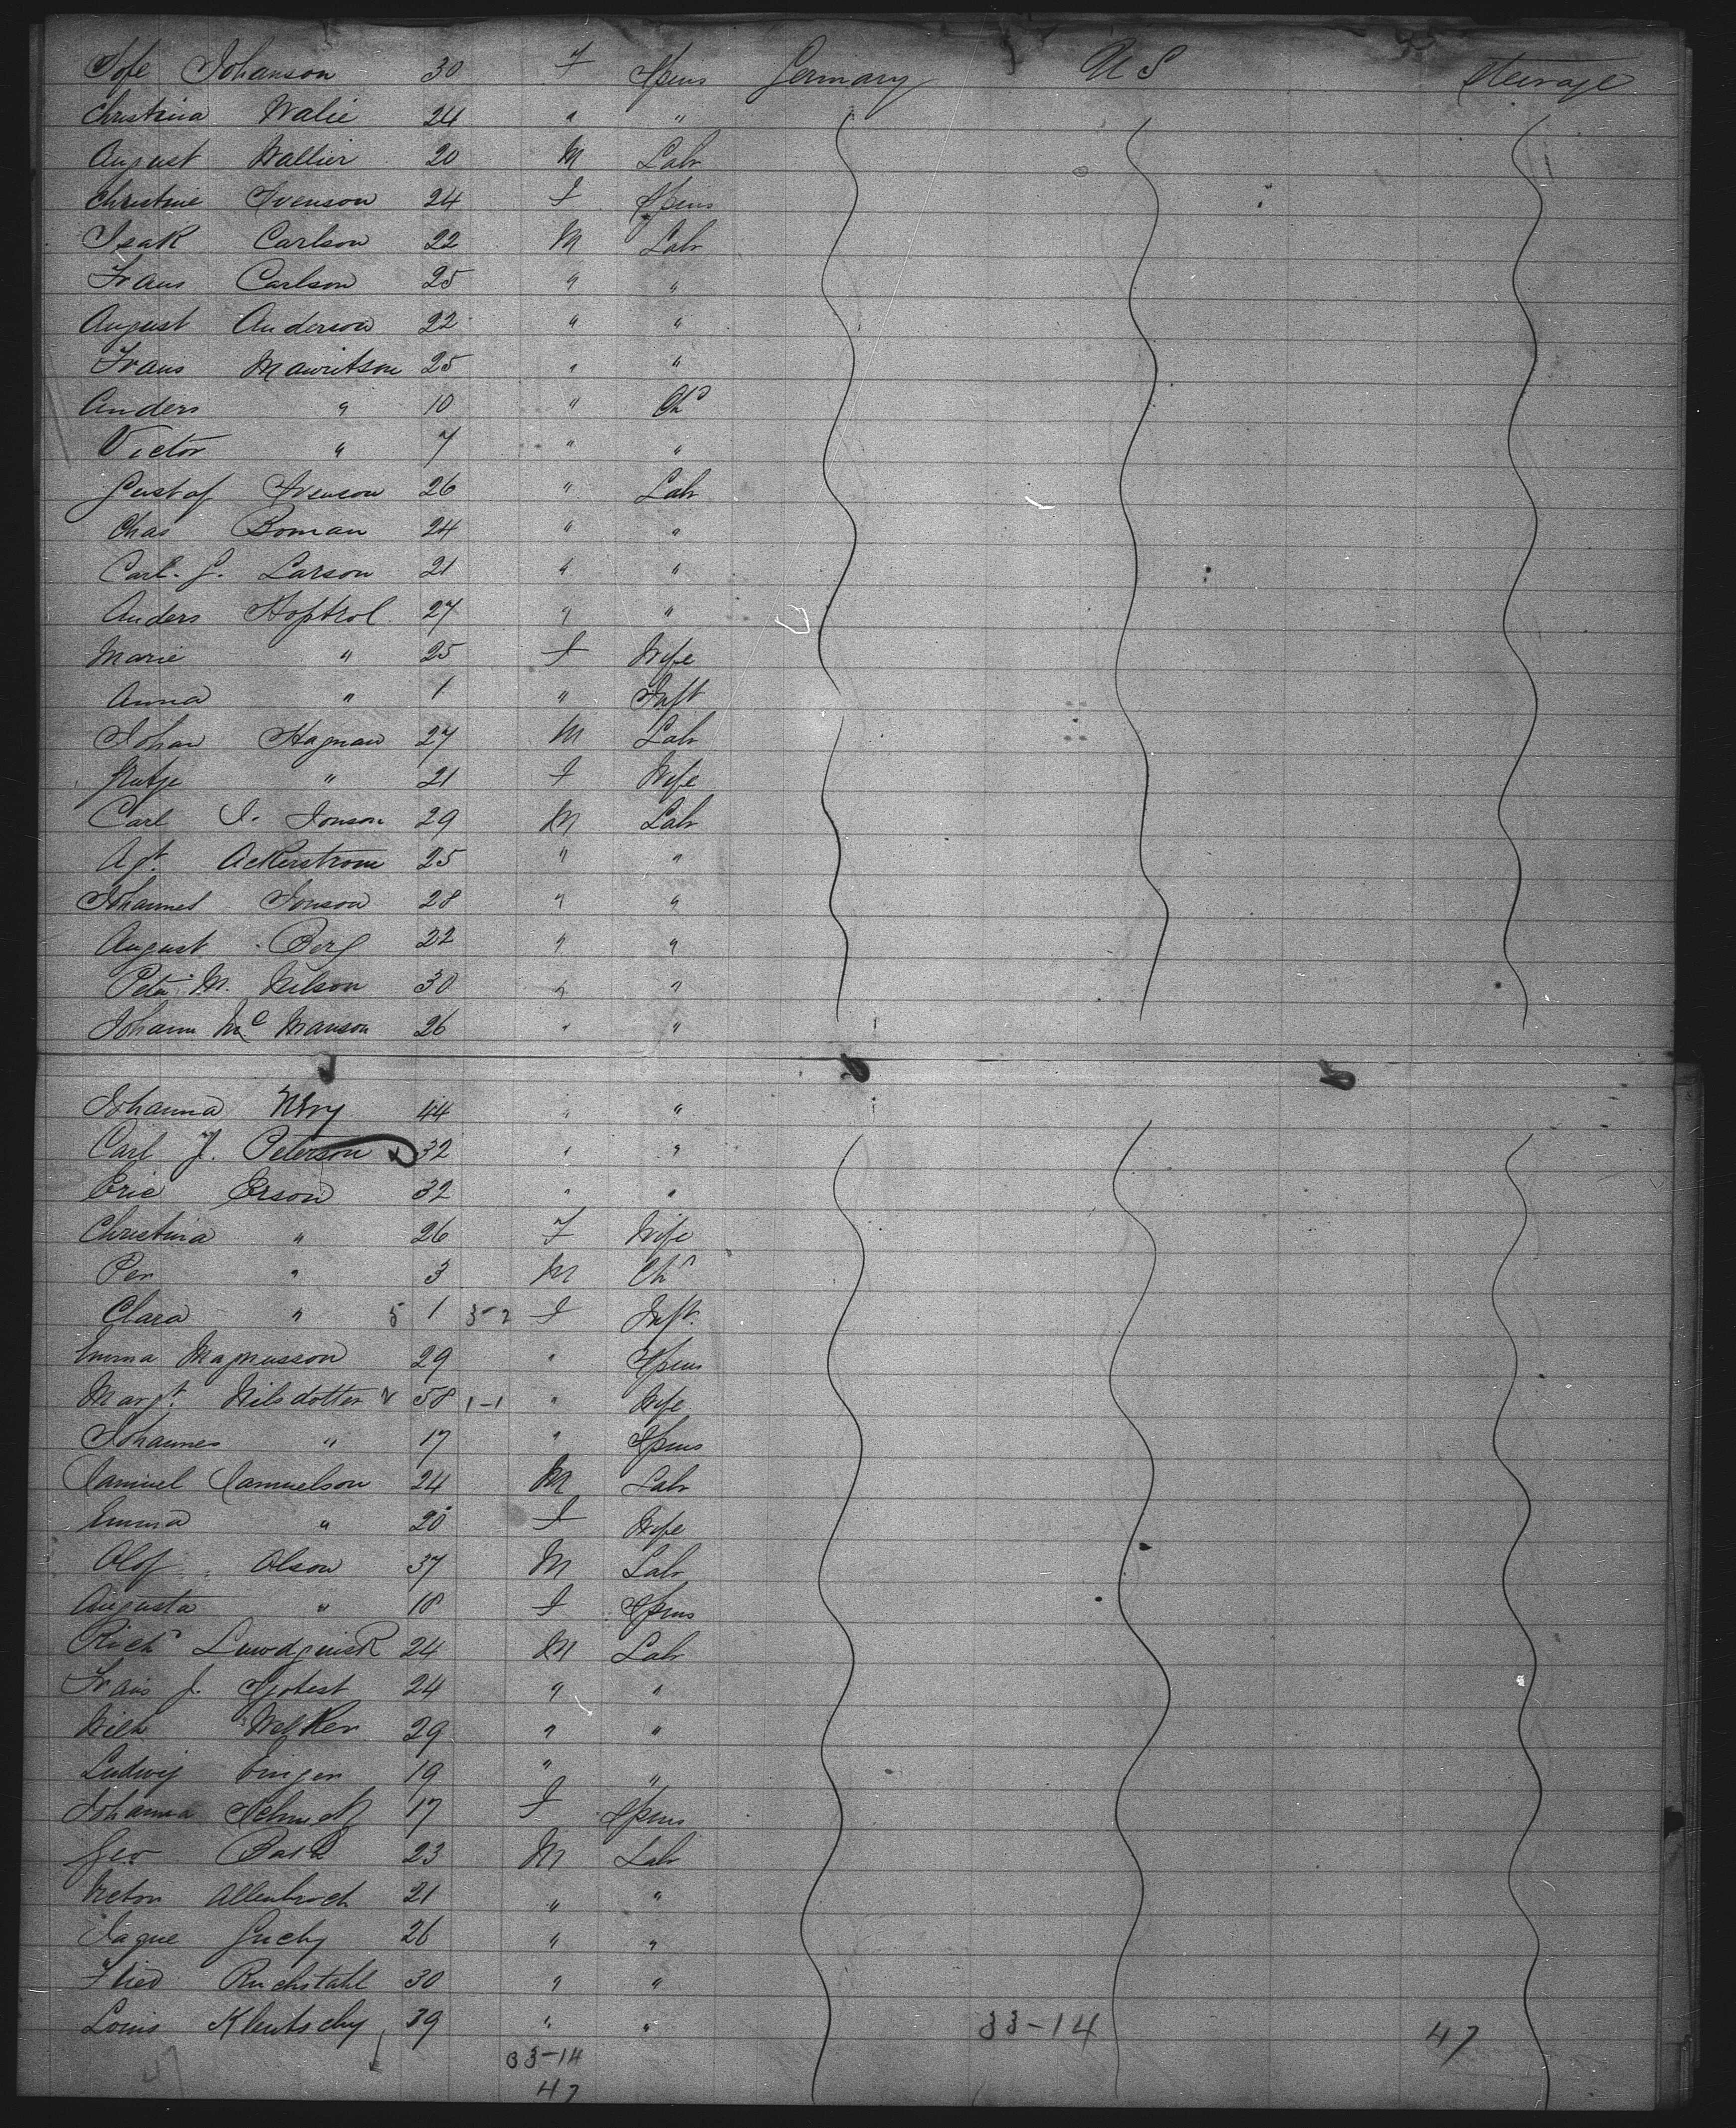 Sofe Johanson 30 F Spins Germany U S Steerage
Christina Walie 24 " "
August Wallier 20 M Labr
Christine Svenson 24 F Spins
Isak Carlson 22 M Labr
Frans Carlson 25 " "
August Anderson 22 " "
Frans Mauritson 25 " "
Anders " 10 " Chd
Victor " 7 " "
Gustaf Svenson 26 " Labr
Chas Boman 24 " "
Carl. G. Larson 21 " "
Anders Hoptrol 27 " "
Marie " 25 F Wife
Anna " 1 " Inft
Johan Hagman 27 M Labr
" 21 F Wife
Carl J. Jonson 29 M Labr
Agt. Ackerstrom 25 " "
Johannes Jonson 28 " "
August Berg 22 " "
Peter M. Nilson 30 " "
Johann Mc Manson 26 " "
Johanna 44 " "
Carl J. Peterson 32 " "
Eric Erson 32 " "
Christina " 26 F Wife
Per " 3 M Chd
Clara " 5 1 3-2 F Inft.
Emma Magnusson 29 " Spins
Margt. Nilsdotter 58 1-1 " Wife
Johannes " 17 " Spins
Samuel Samuelson 24 M Labr
Emma " 20 F Wife
Olof Olson 37 M Labr
Augusta " 18 F Spins
Richd 24 M Labr
Frans J. 24 " "
Wilh Walker 29 " "
Ludwig 19 " "
Johanna Schmidt 17 F Spins
Geo 23 M Labr
Victor Allenbach 21 " "
Jaque 26 " "
Ruchstahl 30 " "
Louis Kleutschy 39 " " 33-14 47
33-14
47